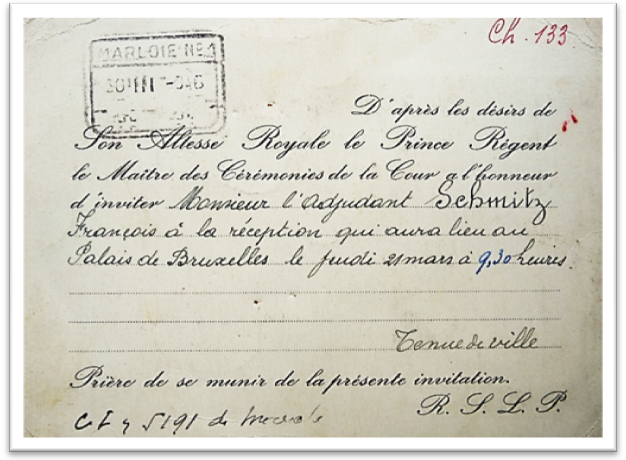 Ch. 133
MARLOIE Nº 1
D'après les désirs de
Son Altesse Royale le Prince Régent
le Maître des Cérémonies de la Cour a l'honneur
d'inviter Monsieur l'adjudant Schmitz
François à la réception qui aura lieu au
Palais de Bruxelles le jeudi 21 mars à 9,30 heures.
Tenue de ville
Prière de se munir de la présente invitation.
R. S. L. P.
5191 de